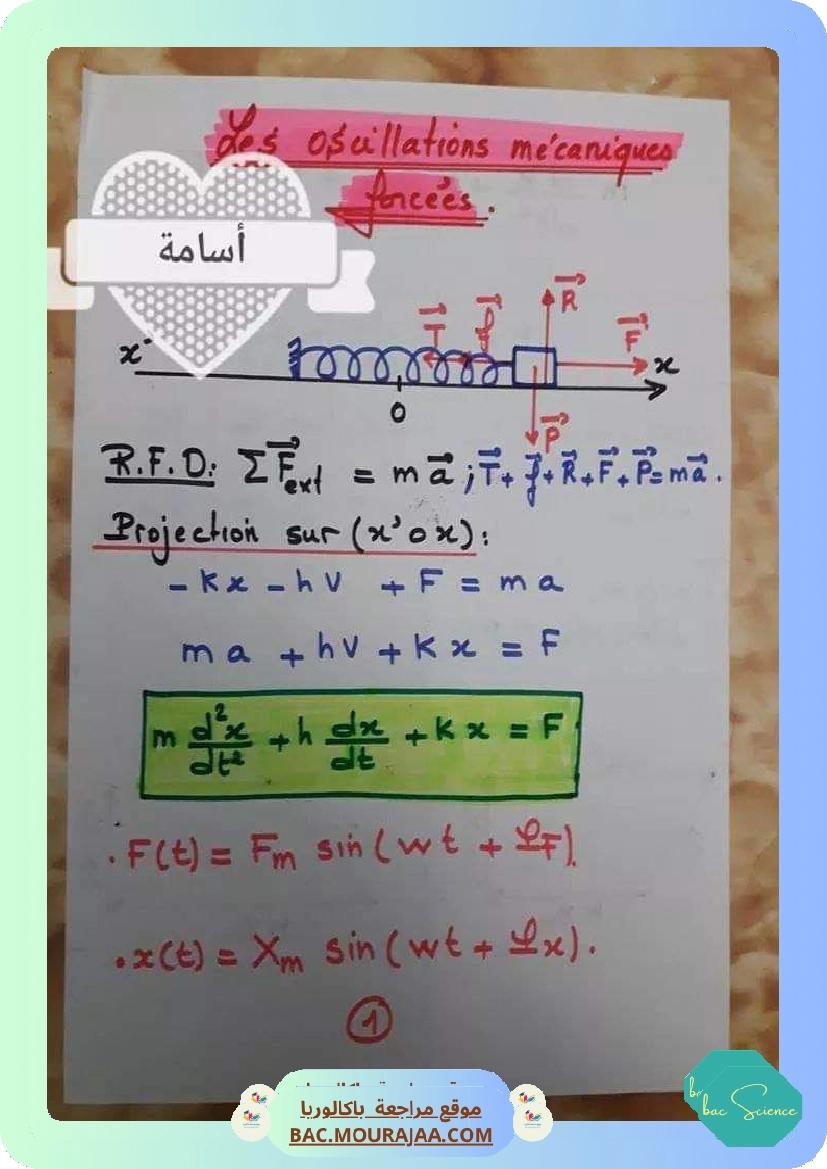 Les oscillations mécaniques
forcées.
أسامة
R
T f F
x' x
O
P
R.F.D: ΣFext = ma ; T + f + R + F + P = ma.
Projection sur (x'ox):
- Kx - hV + F = ma
ma + hV + Kx = F
m d²x/dt² + h dx/dt + Kx = F
. F(t) = Fm sin(wt + φF).
. x(t) = Xm sin(wt + φx).
1
موقع مراجعة باكالوريا
BAC.MOURAJAA.COM
bac Science